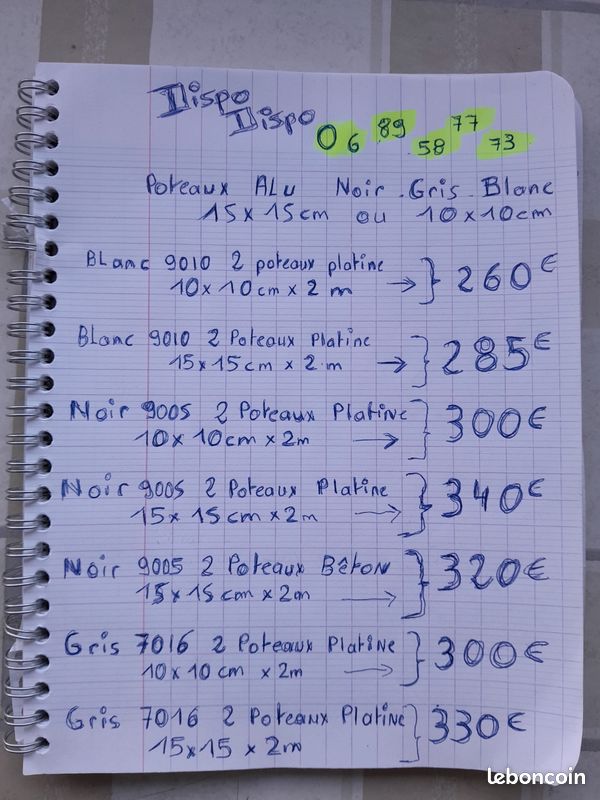 Dispo
Dispo
06 89 58 77 73
Poteaux Alu Noir . Gris . Blanc
15 x 15 cm ou 10 x 10 cm
Blanc 9010 2 poteaux platine
10 x 10 cm x 2 m → } 260€
Blanc 9010 2 Poteaux Platine
15 x 15 cm x 2 m → } 285€
Noir 9005 2 Poteaux Platine
10 x 10 cm x 2m → } 300€
Noir 9005 2 Poteaux Platine
15 x 15 cm x 2m → } 340€
Noir 9005 2 Poteaux Bêton
15 x 15 cm x 2m → } 320€
Gris 7016 2 Poteaux Platine
10 x 10 cm x 2m → } 300€
Gris 7016 2 Poteaux Platine
15 x 15 x 2m } 330€
leboncoin